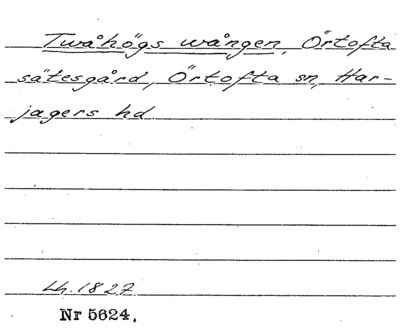 Twåhögs wången, Örtofta
sätesgård, Örtofta sn, Har-
jagers hd
Lh. 1827
Nr 5624.